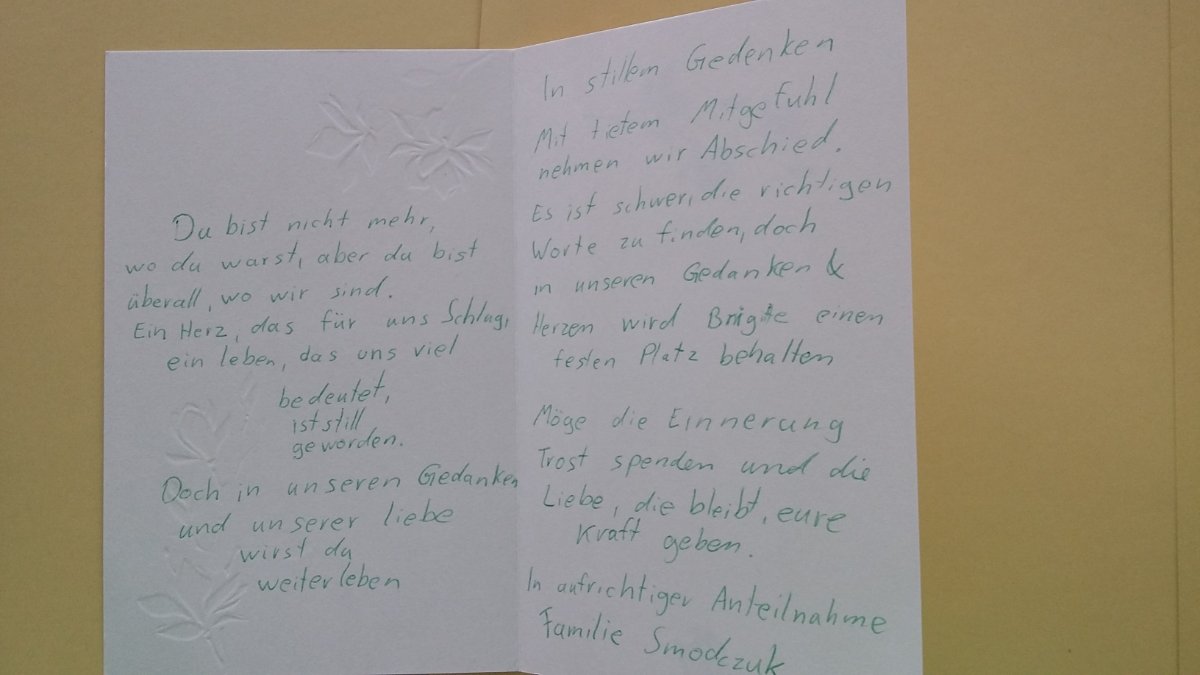 Du bist nicht mehr,
wo du warst, aber du bist
überall, wo wir sind.
Ein Herz, das für uns Schlug,
ein leben, das uns viel
bedeutet,
ist still
geworden.
Doch in unseren Gedanken
und unserer liebe
wirst du
weiterleben
In stillem Gedenken
Mit tiefem Mitgefuhl
nehmen wir Abschied.
Es ist schwer, die richtigen
Worte zu finden, doch
in unseren Gedanken &
Herzen wird Brigite einen
festen Platz behalten
Möge die Einnerung
Trost spenden und die
Liebe, die bleibt, eure
Kraft geben.
In aufrichtiger Anteilnahme
Familie Smodczuk